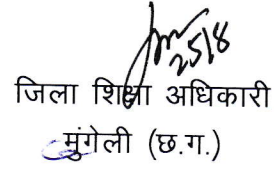 25/8
जिला शिक्षा अधिकारी
मुंगेली (छ.ग.)